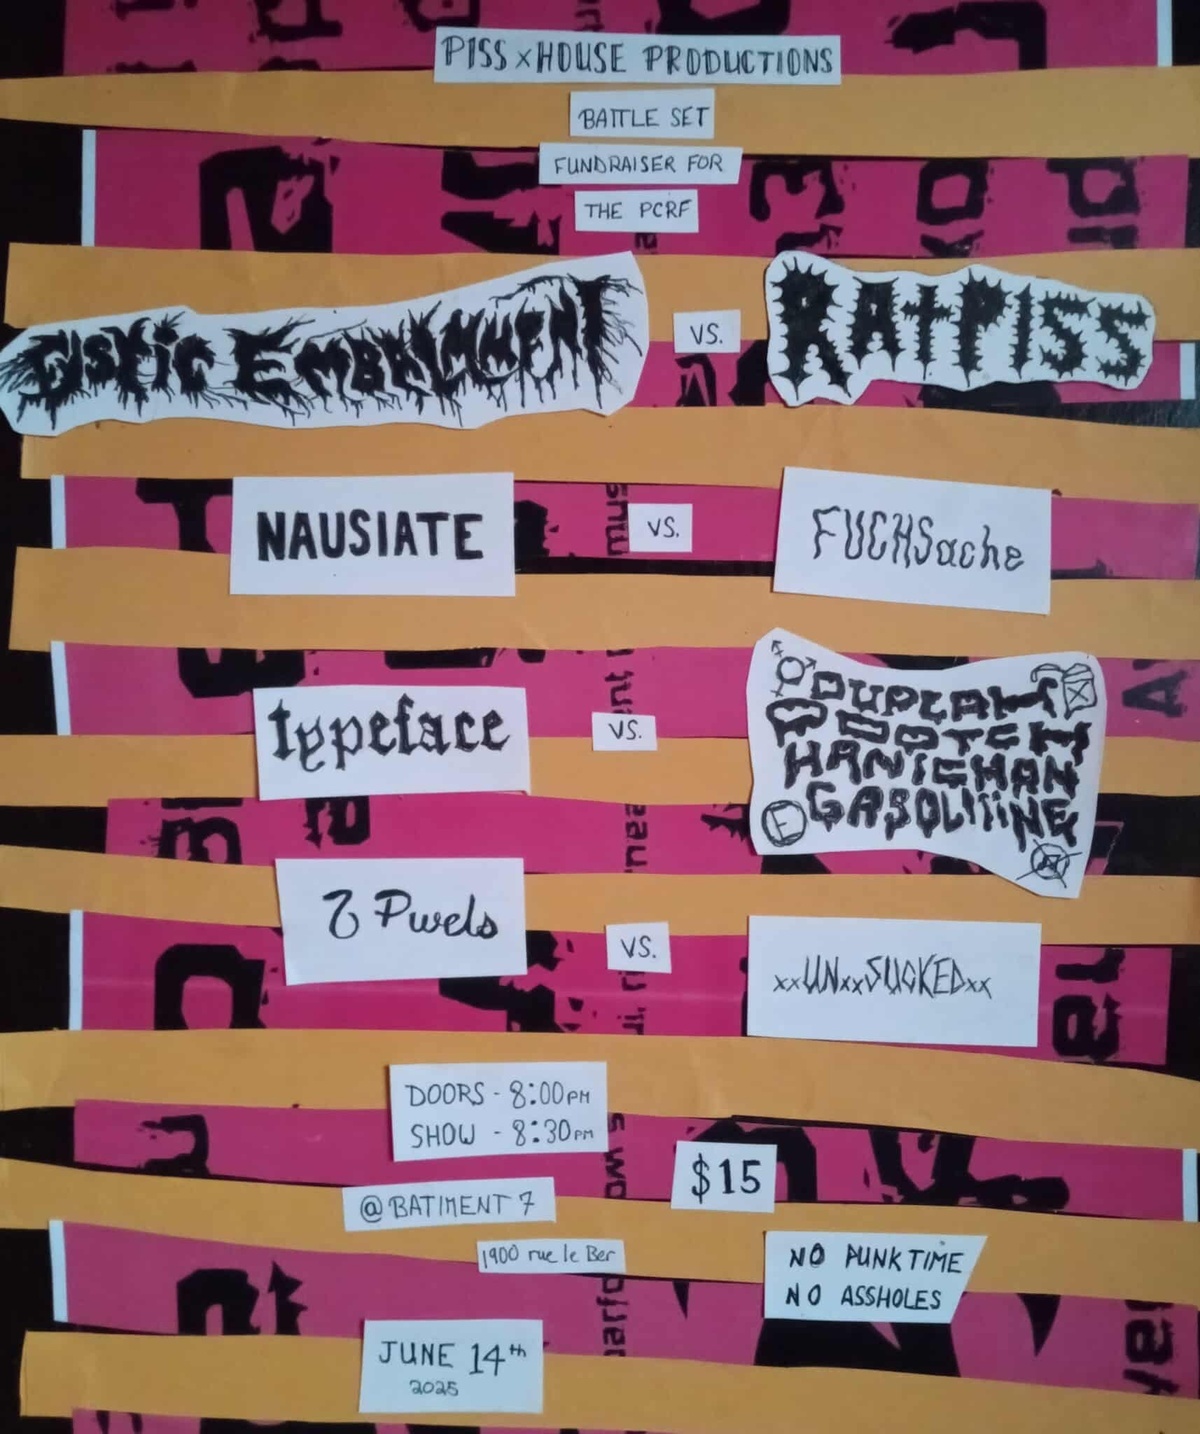 PISS x HOUSE PRODUCTIONS
BATTLE SET
FUNDRAISER FOR
THE PCRF
CISTIC EMBALMMENT VS. RATPISS
NAUSIATE VS. FUCHSache
typeface VS.
HANICHAN
GASOLIIINE
E
A
Pwels VS. xxUNxxSUCKEDxx
DOORS - 8:00PM
SHOW - 8:30PM
$15
@ BATIMENT 7
1900 rue le Ber
NO PUNKTIME
NO ASSHOLES
JUNE 14th
2025